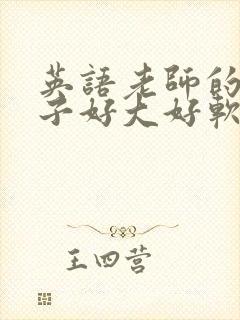 英語老師的
子好大好軟
王四营